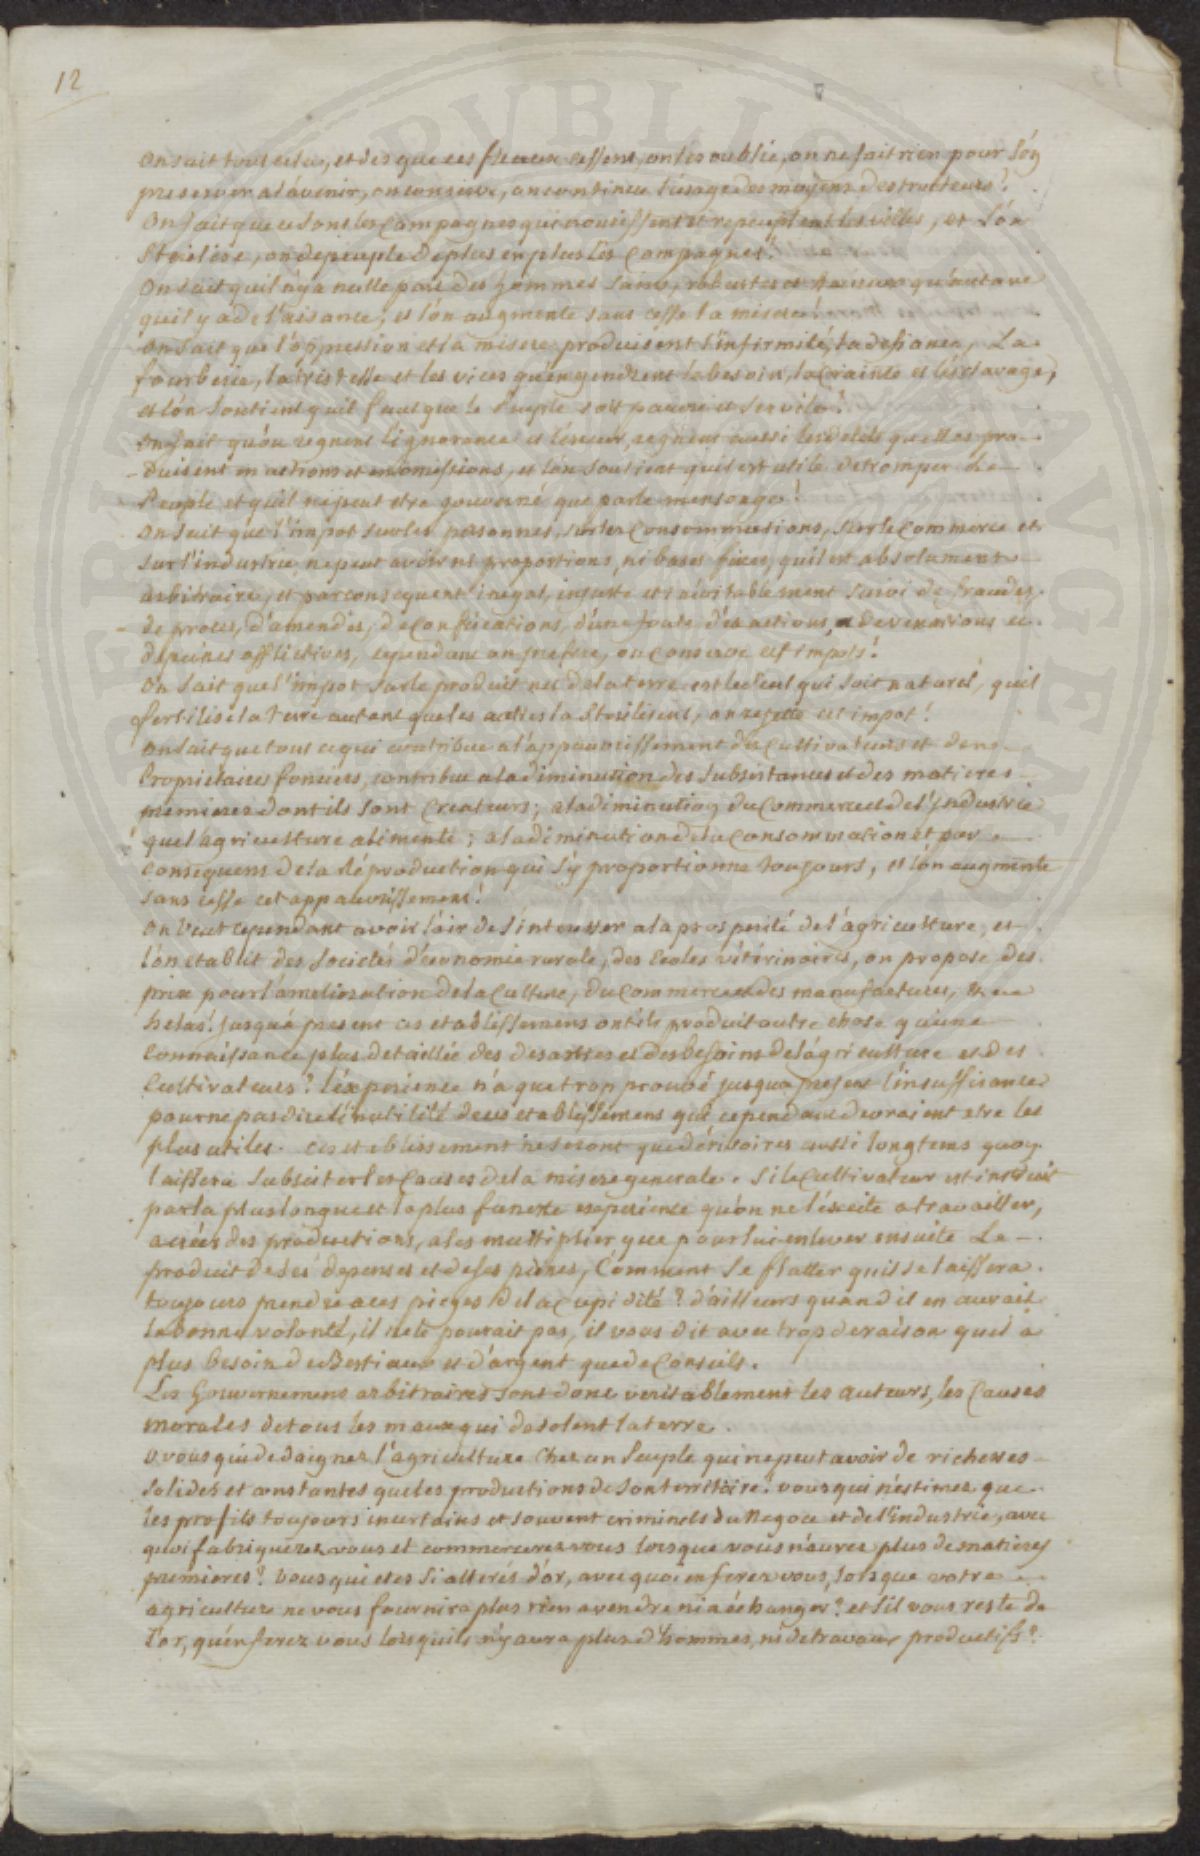 12
on sait tout cela, et des que ces fleaux cessent, on les oublie, on ne fait rien pour s'en
preserver a l'avenir, on conserve, on continue l'usage des moyens destructeurs!
On sait que ce sont les Campagnes qui nourissent et repeuplent les villes, et l'on
Sterilise, on depeuple de plus en plus les Campagnes!
On sait quil n'y a nulle part des hommes sains, robustes et heureux qu'autant
quil y a de l'aisance, et l'on augmente sans cesse la misere!
On sait que l'oppression et la misere produisent l'infirmité, la defiance, La
fourberie, la tristesse et les vices qu'engendrent le besoin, la Crainte et l'esclavage,
et l'on soutient quil faut que le Peuple soit pauvre et servile!
On sait qu'ou regnent l'ignorance et l'erreur, regnent aussi les delits qu'elles pro-
-duisent en actions et en omissions, et l'on soutient quil est utile de tromper Le
Peuple et quil ne peut etre gouverné que par le mensonge!
On sait que l'impot sur les personnes, sur les Consommations, sur le Commerce et
sur l'industrie, ne peut avoir ni proportions, ni bases fixes, quil est absolument
arbitraire, et par consequent inegal, injuste et inévitablement suivi de fraudes,
de procés, d'amendes, de Confiscations, d'une foule d'exactions, de vexations et
de peines afflictives, cependant on prefere, on Conserve cet impots!
On sait que l'impot sur le produit net de la terre est le seul qui soit naturel, quil
fertilise la terre autant que les autres la Sterilisent, on rejette cet impot!
On sait que tout ce qui contribue a l'appauvrissement des Cultivateurs et des
Proprietaires fonciers, contribue a la diminution des subsistances et des matieres
premieres dont ils sont Createurs; a la diminution du Commerce et de l'Industrie
que l'agriculture alimente; a la diminution de la Consommation et par
Consequent de la Réproduction qui s'y proportionne toujours, et l'on augmente
sans cesse cet appauvrissement!
On Veut cependant avoir l'air de s'interesser a la prosperité de l'agriculture, et
l'on etablit des Societés d'économie rurale, des Ecoles vétérinaires, on propose des
prix pour l'amelioration de la Culture, du Commerce et des manufactures, &
helas! jusqu'a present ces etablissemens ont ils produit autre chose qu'une
Connaissance plus detaillée des desastres et des besoins de l'agriculture et des
Cultivateurs? l'éxperience n'a que trop prouvé jusqua present l'insuffisance
pour ne pas dire l'inutilité de ces etablissemens qui cependant devraient etre les
plus utiles. Ces etablissement ne seront que dérisoires aussi longtems quon
laissera subsister les Causes de la misere generale. Si le Cultivateur est instruit
par la plus longue et la plus funeste experience qu'on ne l'éxcite a travailler,
a créer des productions, a les multiplier que pour lui enlever ensuite Le
produit de ses depenses et de ses peines, Comment se flatter quil se laissera
toujours prendre a ces pieges de la Cupidité? d'ailleurs quand il en aurait
la bonne volonté, il ne le pourait pas, il vous dit avec trop de raison quil a
plus besoin de Bestiaux et d'argent que de Conseils.
Les Gouvernemens arbitraires sont donc veritablement les auteurs, les Causes
morales de tous les maux qui desolent la terre.
o vous qui dedaignez l'agriculture Chez un Peuple qui ne peut avoir de richesses
solides et constantes que les productions de son territoire! vous qui n'estimez que
les profits toujours incertains et souvent criminels du Negoce et de l'Industrie, avec
quoi fabriquerez vous et commercerez vous lorsque vous n'aurez plus de matieres
premieres? Vous qui etes si altérés d'or, avec quoi en ferez vous, lorsque votre
agriculture ne vous fournira plus rien a vendre ni a échanger? et s'il vous reste de
l'or, qu'en ferez vous lorsquils n'y aura plus d'hommes, ni de travaux productifs?